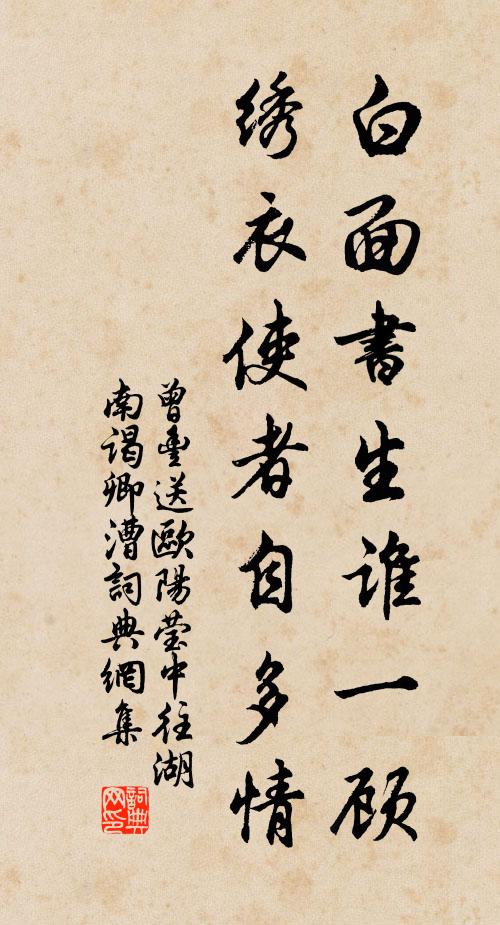 白面書生誰一顧
绣衣使者自多情
曾豊送歐陽瑩中往湖
南謁卿漕詞典網集
詞典
网印